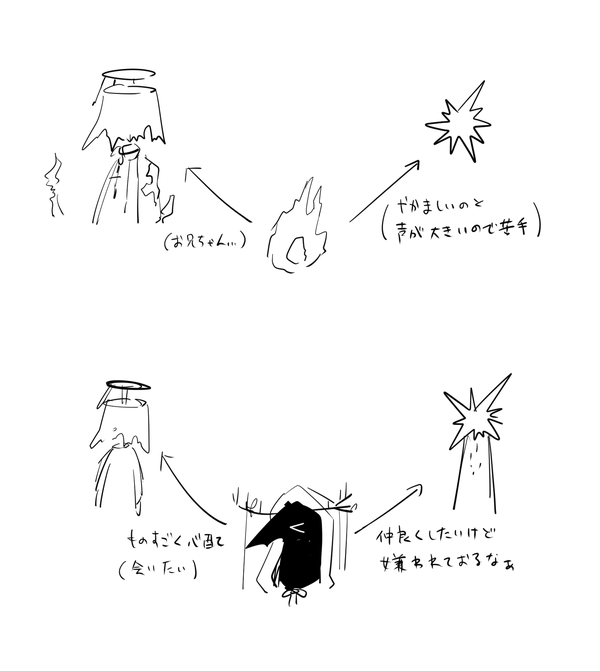 (お兄ちゃん…)
(やかましいのと
声が大きいので苦手)
ものすごく心配で
(会いたい)
仲良くしたいけど
嫌われておるなぁ